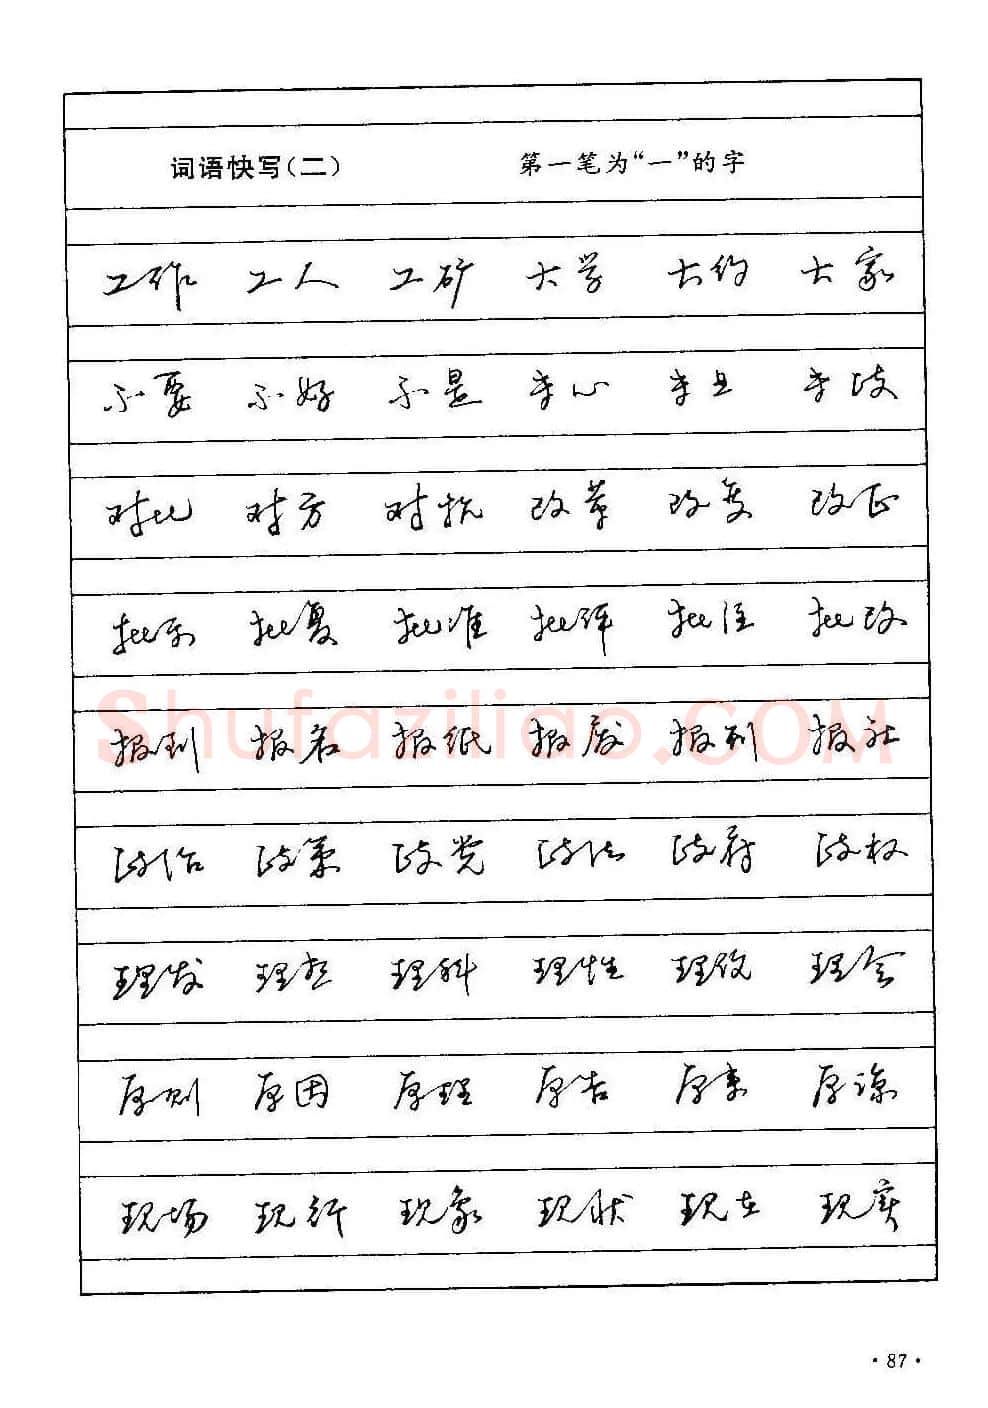 词语快写(二) 第一笔为“一”的字
工作 工人 工矿 大学 大约 大家
不要 不好 不是 专心 专业 专政
对比 对方 对抗 改革 改变 改正
批示 批复 批准 批评 批注 批改
报到 报名 报纸 报废 报刊 报社
政治 政策 政党 政法 政府 政权
理发 理想 理科 理性 理会
原则 原因 原理 原告 原谅
现场 现行 现象 现状 现在 现实
Shufaziliao.COM
·87·